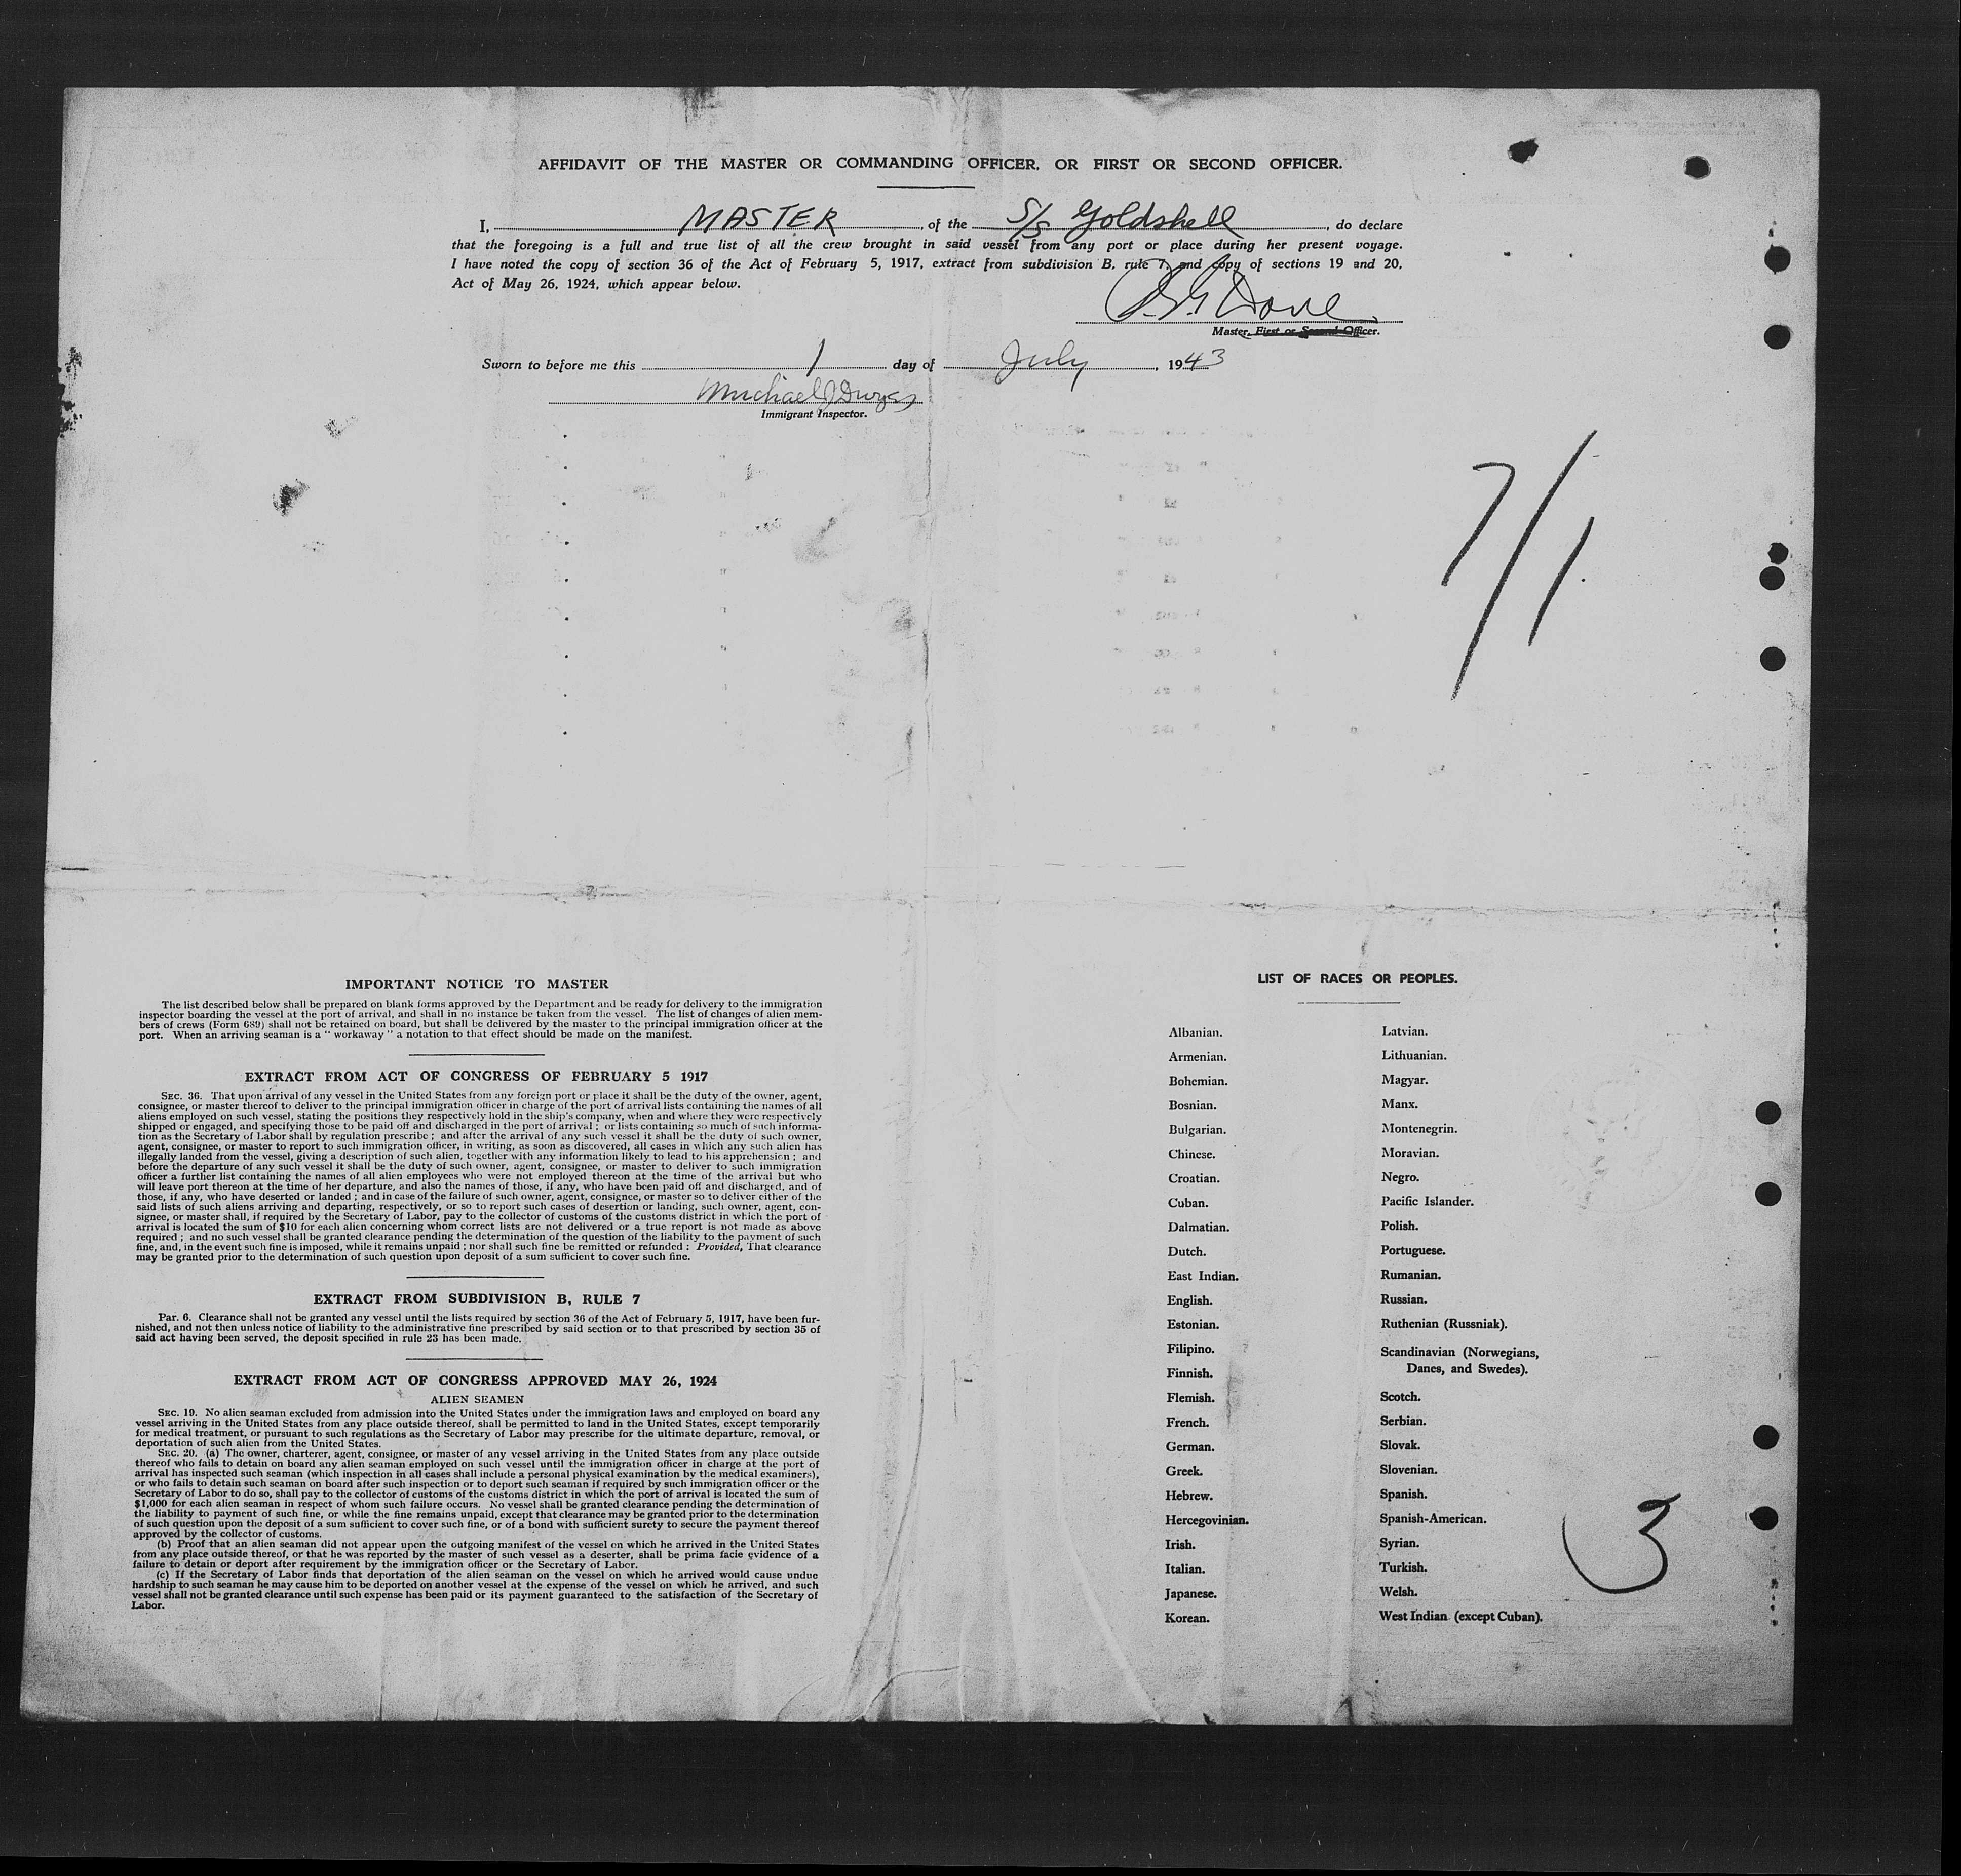 AFFIDAVIT OF THE MASTER OR COMMANDING OFFICER, OR FIRST OR SECOND OFFICER.
I, MASTER, of the S/S Goldshell, do declare
that the foregoing is a full and true list of all the crew brought in said vessel from any port or place during her present voyage.
I have noted the copy of section 36 of the Act of February 5, 1917, extract from subdivision B, rule 7, and copy of sections 19 and 20,
Act of May 26, 1924, which appear below.
Master, First or Second Officer.
Sworn to before me this 1 day of July, 1943
Michael J
Immigrant Inspector.
7/1
IMPORTANT NOTICE TO MASTER
The list described below shall be prepared on blank forms approved by the Department and be ready for delivery to the immigration
inspector boarding the vessel at the port of arrival, and shall in no instance be taken from the vessel. The list of changes of alien mem-
bers of crews (Form 689) shall not be retained on board, but shall be delivered by the master to the principal immigration officer at the
port. When an arriving seaman is a " workaway " a notation to that effect should be made on the manifest.
EXTRACT FROM ACT OF CONGRESS OF FEBRUARY 5 1917
SEC. 36. That upon arrival of any vessel in the United States from any foreign port or place it shall be the duty of the owner, agent,
consignee, or master thereof to deliver to the principal immigration officer in charge of the port of arrival lists containing the names of all
aliens employed on such vessel, stating the positions they respectively hold in the ship's company, when and where they were respectively
shipped or engaged, and specifying those to be paid off and discharged in the port of arrival ; or lists containing so much of such informa-
tion as the Secretary of Labor shall by regulation prescribe ; and after the arrival of any such vessel it shall be the duty of such owner,
agent, consignee, or master to report to such immigration officer, in writing, as soon as discovered, all cases in which any such alien has
illegally landed from the vessel, giving a description of such alien, together with any information likely to lead to his apprehension ; and
before the departure of any such vessel it shall be the duty of such owner, agent, consignee, or master to deliver to such immigration
officer a further list containing the names of all alien employees who were not employed thereon at the time of the arrival but who
will leave port thereon at the time of her departure, and also the names of those, if any, who have been paid off and discharged, and of
those, if any, who have deserted or landed ; and in case of the failure of such owner, agent, consignee, or master so to deliver either of the
said lists of such aliens arriving and departing, respectively, or so to report such cases of desertion or landing, such owner, agent, con-
signee, or master shall, if required by the Secretary of Labor, pay to the collector of customs of the customs district in which the port of
arrival is located the sum of $10 for each alien concerning whom correct lists are not delivered or a true report is not made as above
required ; and no such vessel shall be granted clearance pending the determination of the question of the liability to the payment of such
fine, and, in the event such fine is imposed, while it remains unpaid ; nor shall such fine be remitted or refunded : Provided, That clearance
may be granted prior to the determination of such question upon deposit of a sum sufficient to cover such fine.
EXTRACT FROM SUBDIVISION B, RULE 7
Par. 6. Clearance shall not be granted any vessel until the lists required by section 36 of the Act of February 5, 1917, have been fur-
nished, and not then unless notice of liability to the administrative fine prescribed by said section or to that prescribed by section 35 of
said act having been served, the deposit specified in rule 23 has been made.
EXTRACT FROM ACT OF CONGRESS APPROVED MAY 26, 1924
ALIEN SEAMEN
SEC. 19. No alien seaman excluded from admission into the United States under the immigration laws and employed on board any
vessel arriving in the United States from any place outside thereof, shall be permitted to land in the United States, except temporarily
for medical treatment, or pursuant to such regulations as the Secretary of Labor may prescribe for the ultimate departure, removal, or
deportation of such alien from the United States.
SEC. 20. (a) The owner, charterer, agent, consignee, or master of any vessel arriving in the United States from any place outside
thereof who fails to detain on board any alien seaman employed on such vessel until the immigration officer in charge at the port of
arrival has inspected such seaman (which inspection in all cases shall include a personal physical examination by the medical examiners),
or who fails to detain such seaman on board after such inspection or to deport such seaman if required by such immigration officer or the
Secretary of Labor to do so, shall pay to the collector of customs of the customs district in which the port of arrival is located the sum of
$1,000 for each alien seaman in respect of whom such failure occurs. No vessel shall be granted clearance pending the determination of
the liability to payment of such fine, or while the fine remains unpaid, except that clearance may be granted prior to the determination
of such question upon the deposit of a sum sufficient to cover such fine, or of a bond with sufficient surety to secure the payment thereof
approved by the collector of customs.
(b) Proof that an alien seaman did not appear upon the outgoing manifest of the vessel on which he arrived in the United States
from any place outside thereof, or that he was reported by the master of such vessel as a deserter, shall be prima facie evidence of a
failure to detain or deport after requirement by the immigration officer or the Secretary of Labor.
(c) If the Secretary of Labor finds that deportation of the alien seaman on the vessel on which he arrived would cause undue
hardship to such seaman he may cause him to be deported on another vessel at the expense of the vessel on which he arrived, and such
vessel shall not be granted clearance until such expense has been paid or its payment guaranteed to the satisfaction of the Secretary of
Labor.
LIST OF RACES OR PEOPLES.
Albanian.
Armenian.
Bohemian.
Bosnian.
Bulgarian.
Chinese.
Croatian.
Cuban.
Dalmatian.
Dutch.
East Indian.
English.
Estonian.
Filipino.
Finnish.
Flemish.
French.
German.
Greek.
Hebrew.
Hercegovinian.
Irish.
Italian.
Japanese.
Korean.
Latvian.
Lithuanian.
Magyar.
Manx.
Montenegrin.
Moravian.
Negro.
Pacific Islander.
Polish.
Portuguese.
Rumanian.
Russian.
Ruthenian (Russniak).
Scandinavian (Norwegians,
Danes, and Swedes).
Scotch.
Serbian.
Slovak.
Slovenian.
Spanish.
Spanish-American.
Syrian.
Turkish.
Welsh.
West Indian (except Cuban).
3